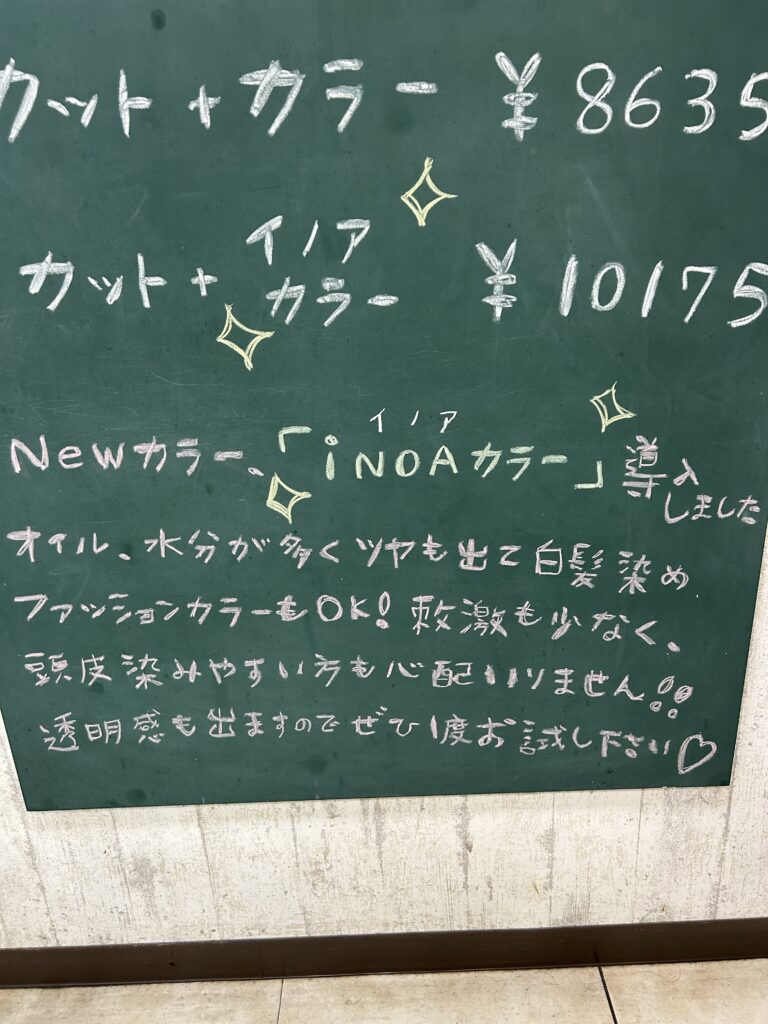 カット+カラー ¥8635
カット+イノアカラー ¥10175
イノア
Newカラー、「iNOAカラー」導入しました
オイル、水分が多くツヤも出て白髪染め
ファッションカラーもOK!刺激も少なく、
頭皮染みやすい方も心配いりません!!
透明感も出ますのでぜひ1度お試し下さい♡